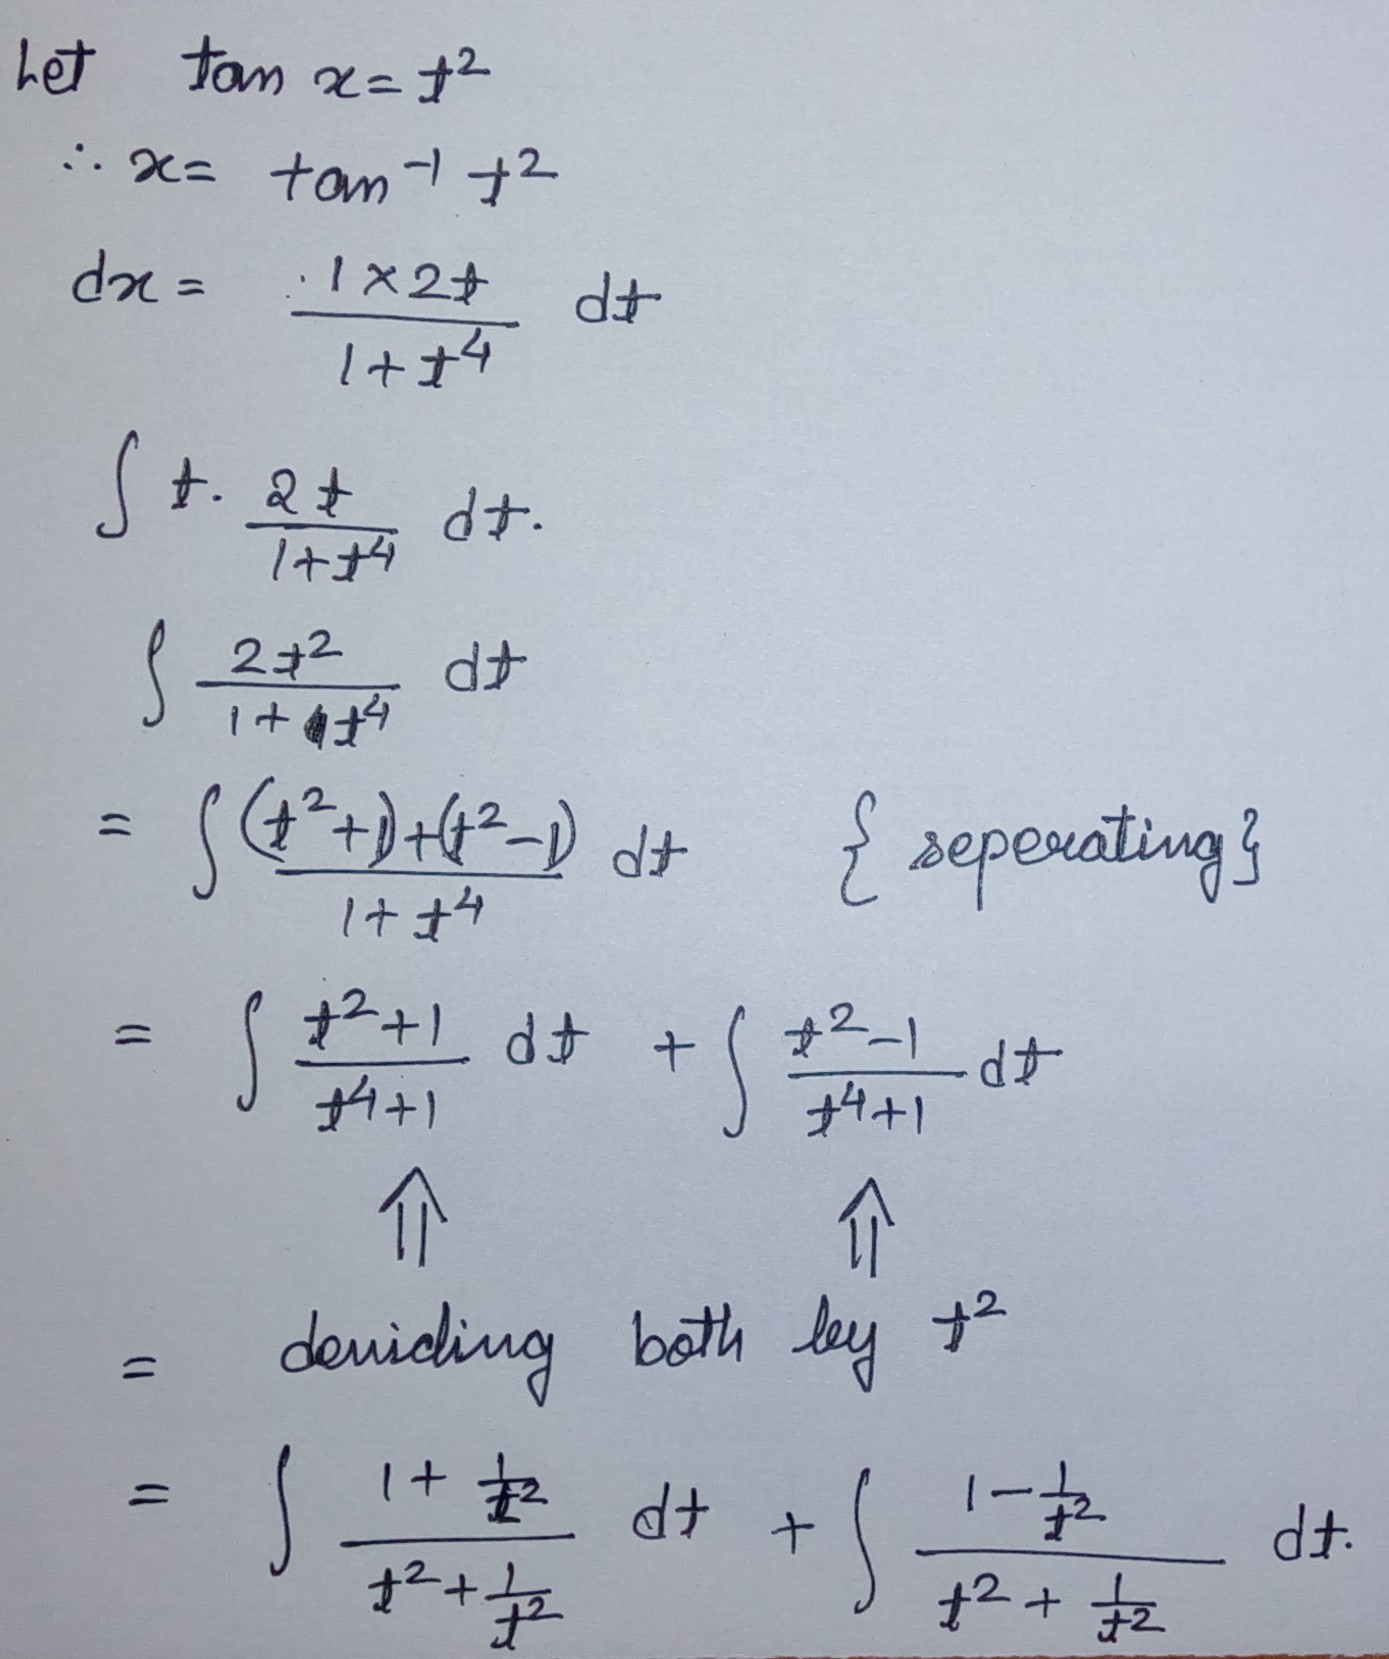 Let tan x = t²
∴ x = tan⁻¹ t²
dx = (1 × 2t)/(1 + t⁴) dt
∫ t. 2t/(1 + t⁴) dt.
∫ 2t²/(1 + t⁴) dt
= ∫ ((t² + 1) + (t² − 1))/(1 + t⁴) dt { seperating }
= ∫ (t² + 1)/(t⁴ + 1) dt + ∫ (t² − 1)/(t⁴ + 1) dt
⇑ ⇑
= deviding both by t²
= ∫ (1 + 1/t²)/(t² + 1/t²) dt + ∫ (1 − 1/t²)/(t² + 1/t²) dt.